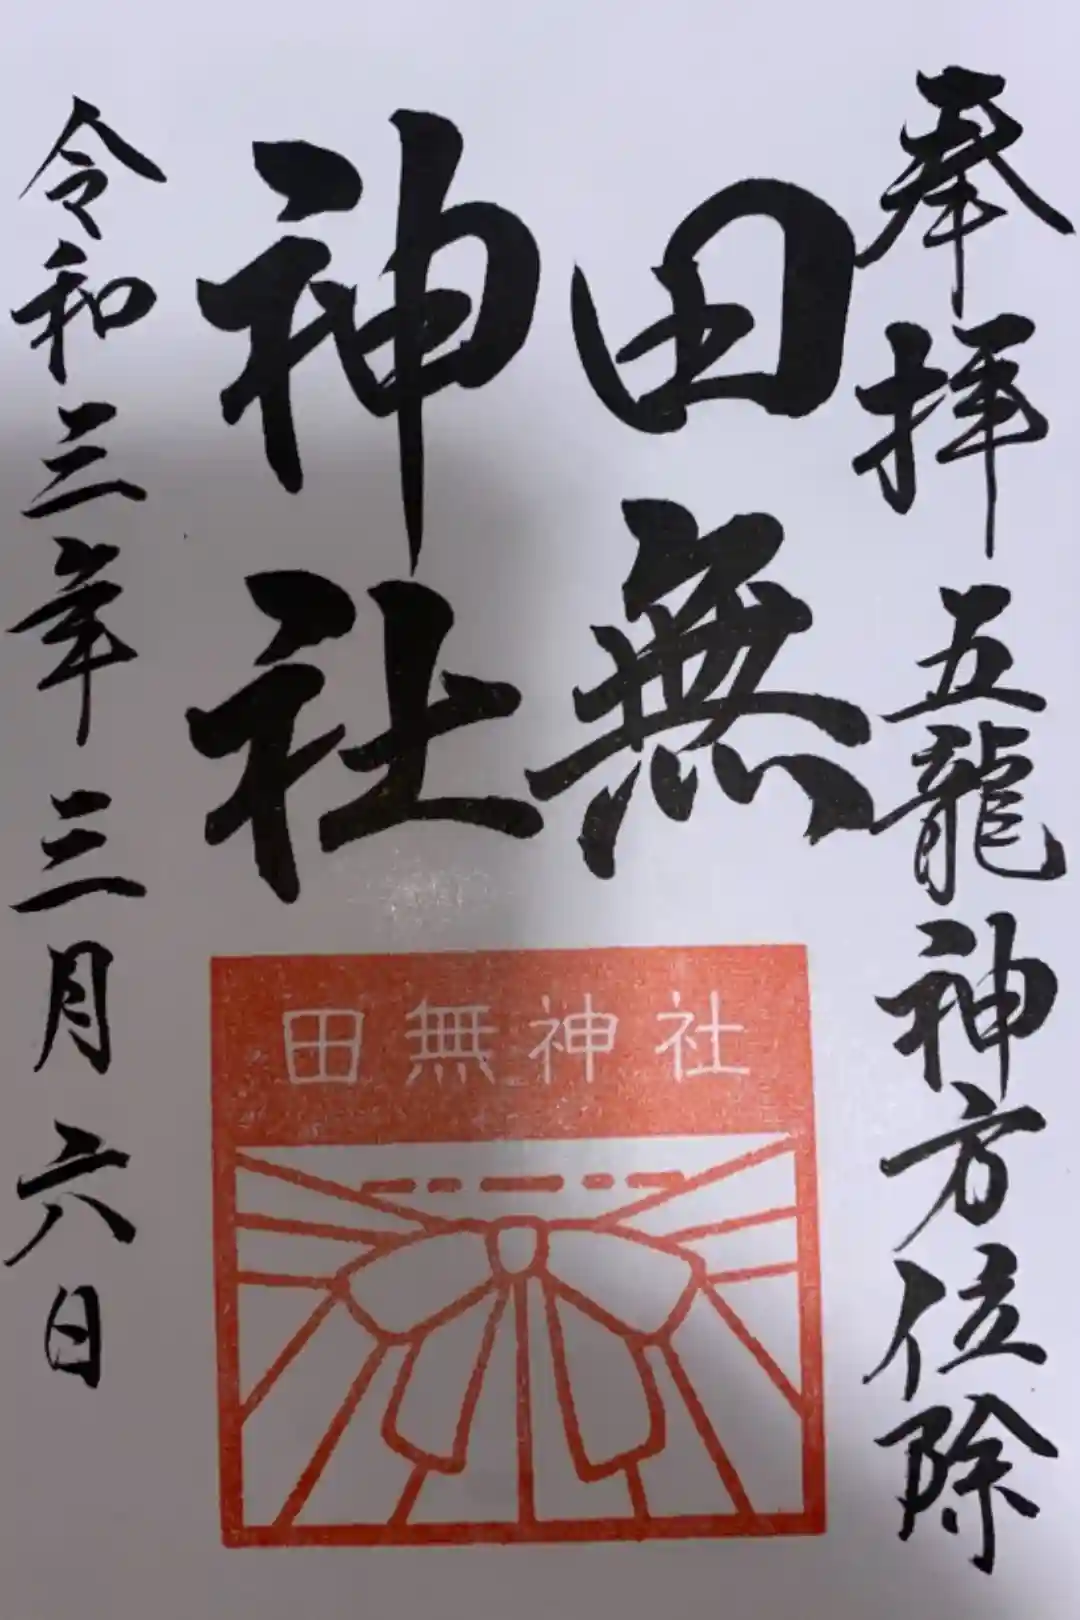 奉拝 五龍神方位除
田無
神社
田無神社
令和三年三月六日